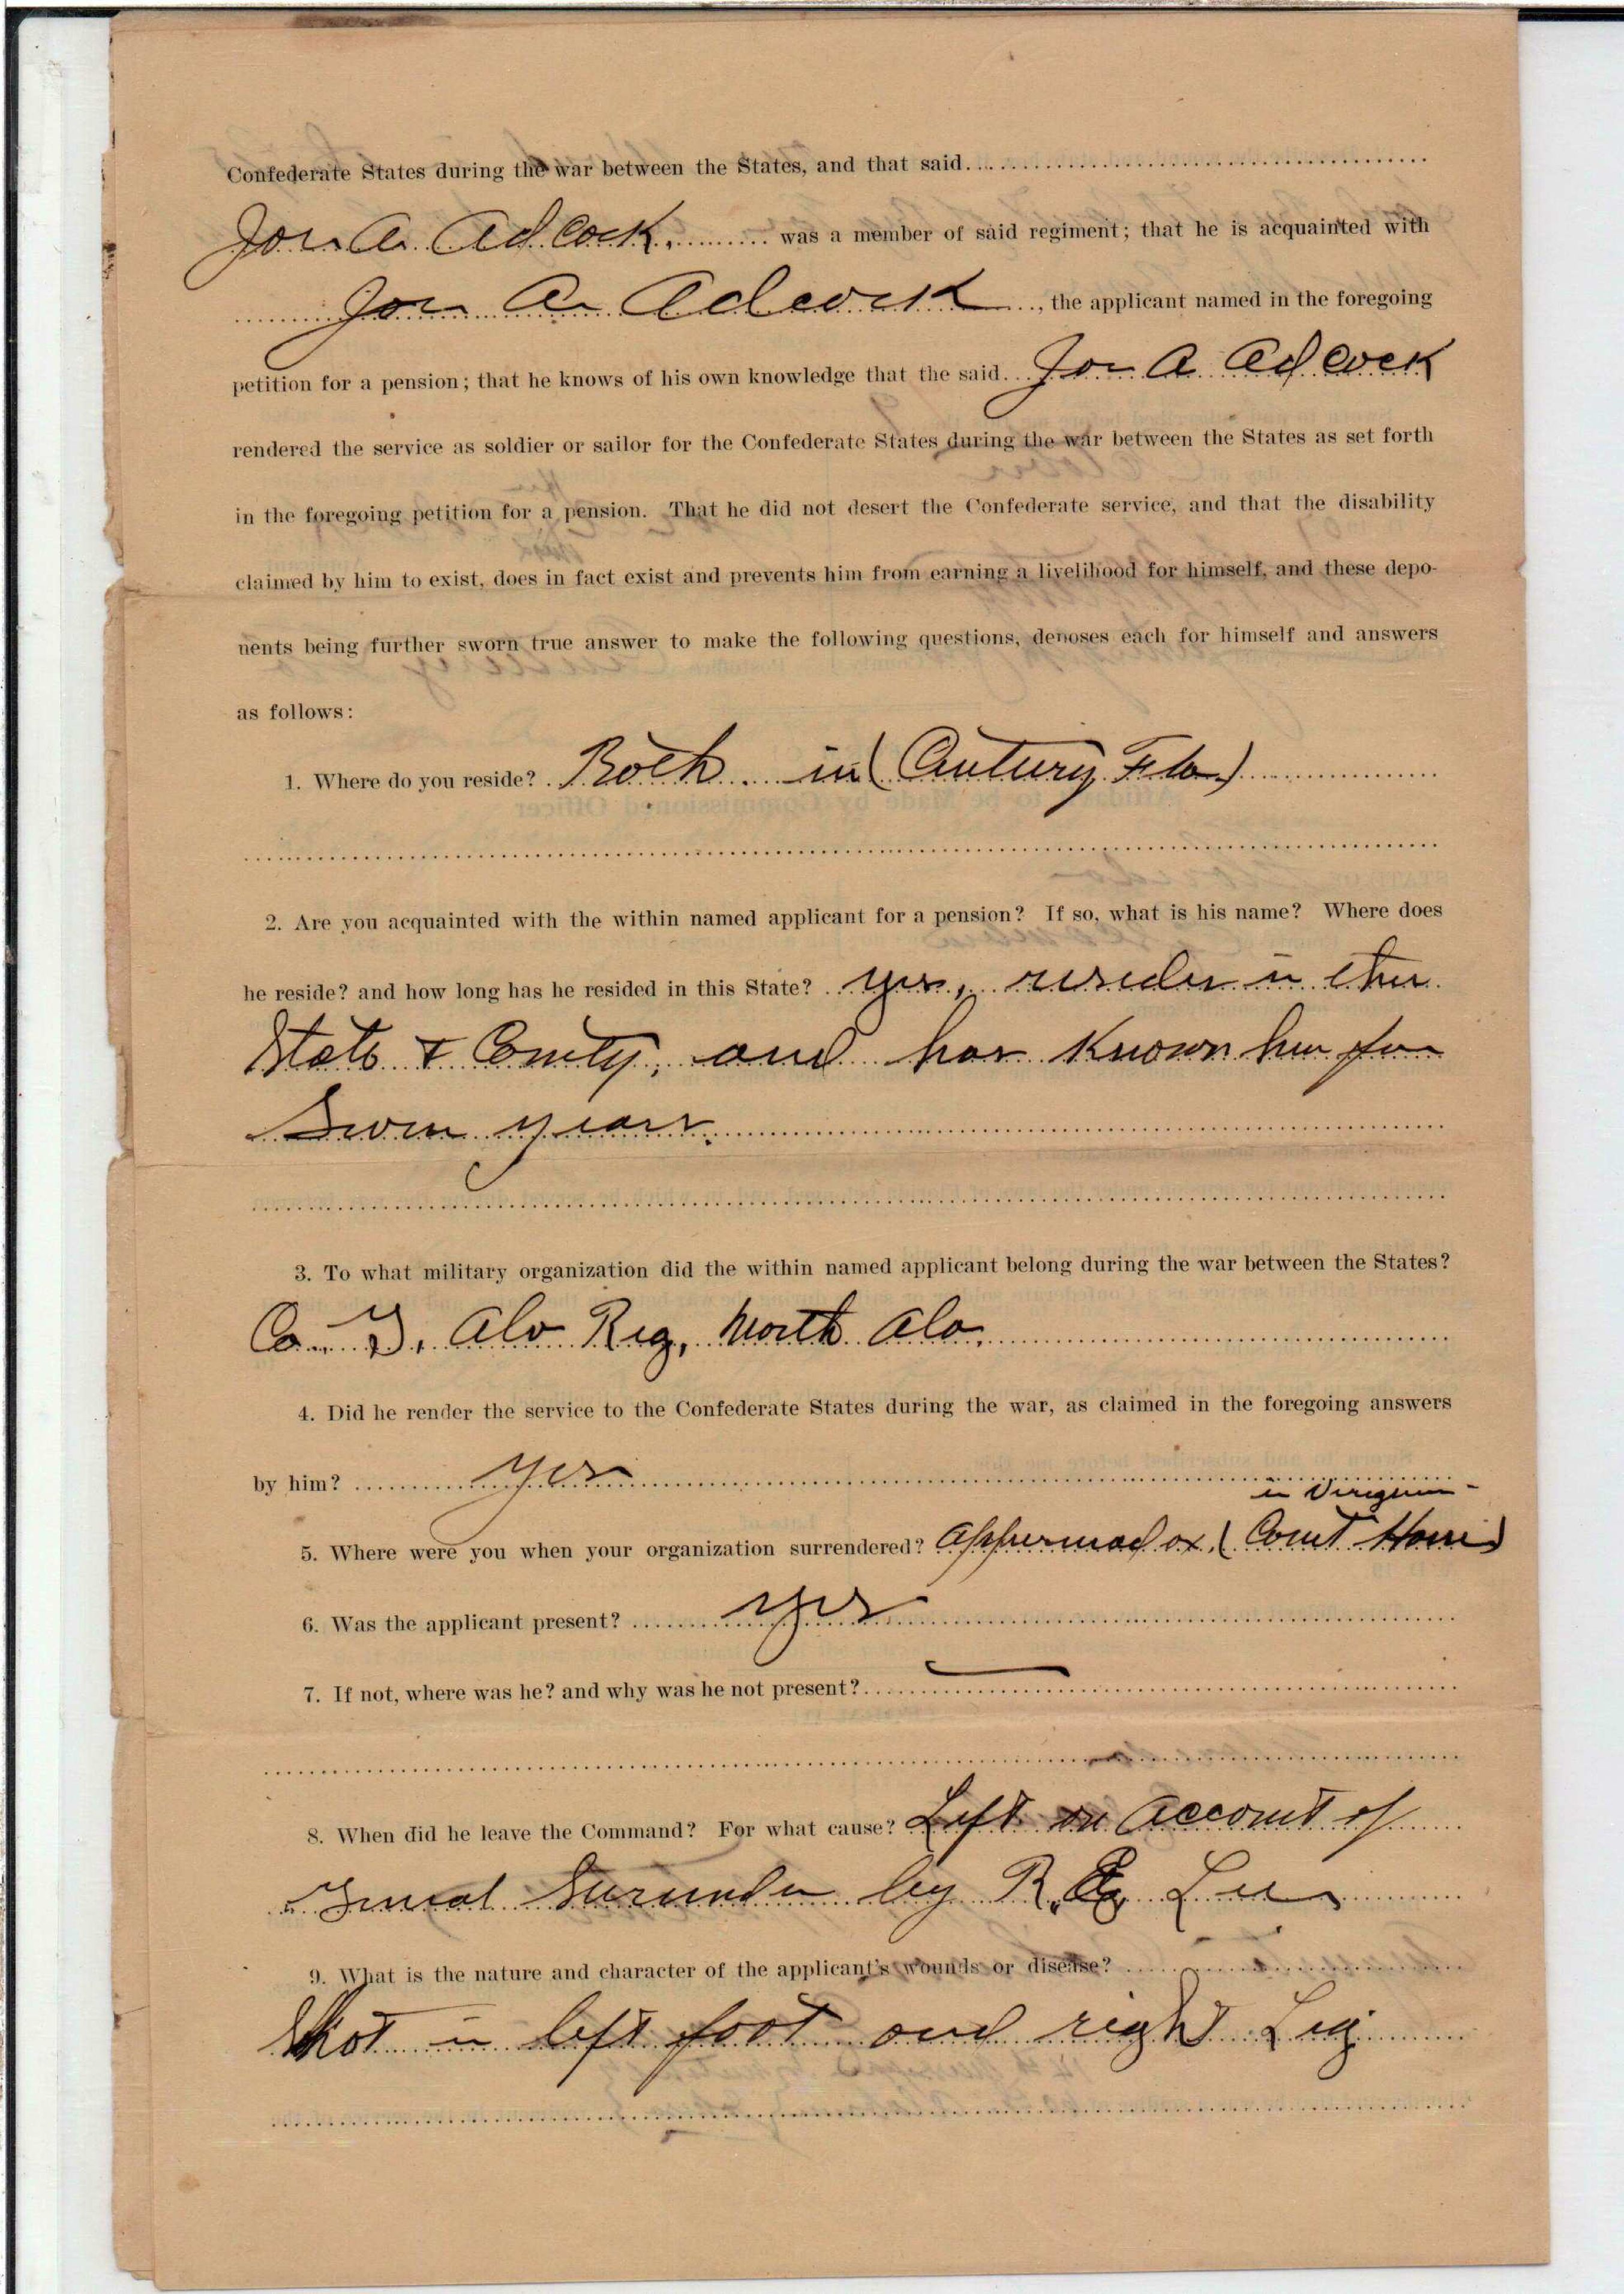 Confederate States during the war between the States, and that said
Jos. A. Adcock, was a member of said regiment; that he is acquainted with
Jos A Adcock, the applicant named in the foregoing
petition for a pension; that he knows of his own knowledge that the said Jos A Adcock
rendered the service as soldier or sailor for the Confederate States during the war between the States as set forth
in the foregoing petition for a pension. That he did not desert the Confederate service, and that the disability
claimed by him to exist, does in fact exist and prevents him from earning a livelihood for himself, and these depo-
nents being further sworn true answer to make the following questions, deposes each for himself and answers
as follows:
1. Where do you reside? Both in (Century Fla)
2. Are you acquainted with the within named applicant for a pension? If so, what is his name? Where does
he reside? and how long has he resided in this State? Yes, resides in this
State & County, and has known him for
Seven years.
3. To what military organization did the within named applicant belong during the war between the States?
Co. Ala Reg, North Ala.
4. Did he render the service to the Confederate States during the war, as claimed in the foregoing answers
by him? Yes
in Virginia
5. Where were you when your organization surrendered? Appurmadox, (Court House)
6. Was the applicant present? Yes
7. If not, where was he? and why was he not present?
8. When did he leave the Command? For what cause? Left on Account of
General Surrender by R. E. Lee
9. What is the nature and character of the applicant's wounds or disease?
Shot in left foot and right Leg